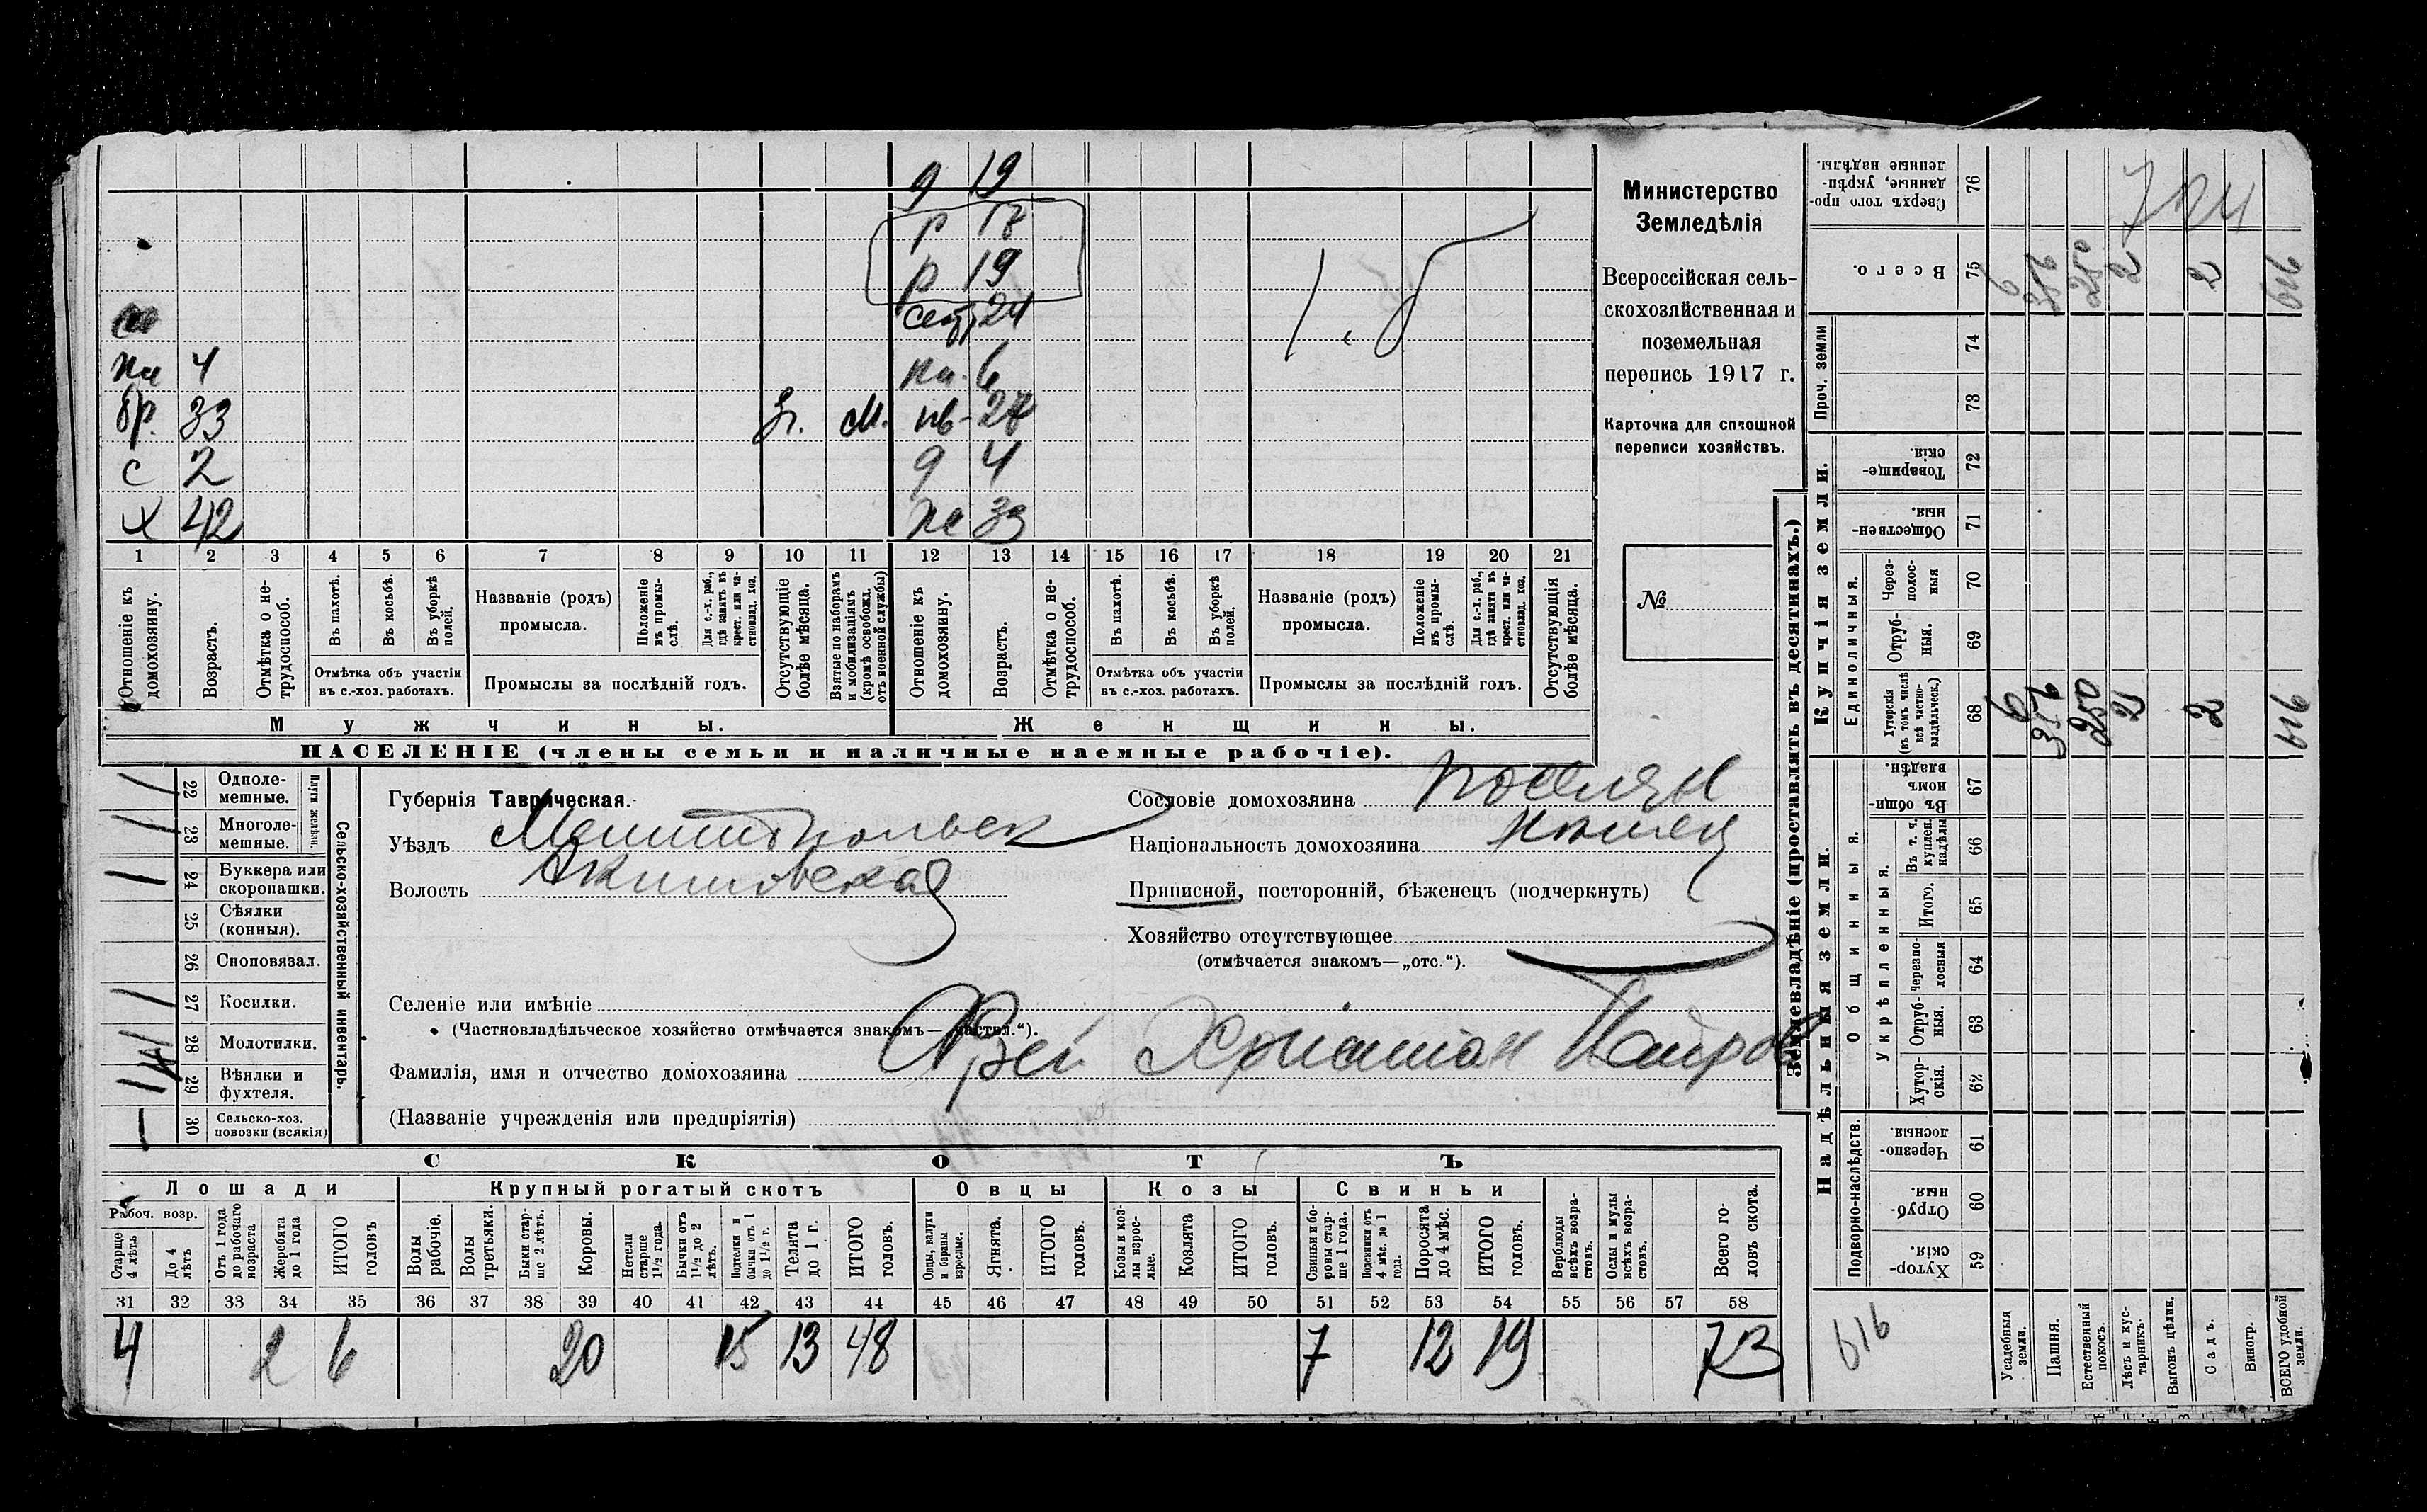 д 19
р 17
р 19
сест. 24
пл 4
пл. 6
бр. 33
З. М.
пв - 27
с 2
д 4
х 42
же 33
1 2 3 4 5 6 7 8 9 10 11 12 13 14 15 16 17 18 19 20 21
Отношеніе къ домохозяину.
Возрастъ.
Отмѣтка о нетрудоспособ.
Въ пахотѣ.
Въ косьбѣ.
Въ уборкѣ полей.
Отмѣтка объ участіи въ с.-хоз. работахъ.
Названіе (родъ) промысла.
Положеніе въ промыслѣ.
Для с.-х. раб., гдѣ занятъ въ крест. или частновлад. хоз.
Промыслы за послѣдній годъ.
Отсутствующіе болѣе мѣсяца.
Взятые по наборамъ и мобилизаціямъ (кромѣ освобожд. отъ военной службы)
Отношеніе къ домохозяину.
Возрастъ.
Отмѣтка о нетрудоспособ.
Въ пахотѣ.
Въ косьбѣ.
Въ уборкѣ полей.
Отмѣтка объ участіи въ с.-хоз. работахъ.
Названіе (родъ) промысла.
Положеніе въ промыслѣ.
Для с.-х. раб., гдѣ занята въ крест. или частновлад. хоз.
Промыслы за послѣдній годъ.
Отсутствующія болѣе мѣсяца.
Мужчины.
Женщины.
НАСЕЛЕНІЕ (члены семьи и наличные наемные рабочіе).
Министерство
Земледѣлія
Всероссійская сель-
скохозяйственная и
поземельная
перепись 1917 г.
Карточка для сплошной
переписи хозяйствъ.
№
22 Одноле-
мешные.
23 Многоле-
мешные.
Плуги желѣзн.
24 Буккера или
скоропашки.
25 Сѣялки
(конныя).
26 Сноповязал.
27 Косилки.
28 Молотилки.
29 Вѣялки и
фухтеля.
30 Сельско-хоз.
повозки (всякія)
Сельско-хозяйственный инвентарь.
Губернія Таврическая.
Уѣздъ Мелитопольск
Волость Акимовская
Сословіе домохозяина поселян
Національность домохозяина немец
Приписной, посторонній, бѣженецъ (подчеркнуть)
Хозяйство отсутствующее
(отмѣчается знакомъ—„отс.“).
Селеніе или имѣніе
(Частновладѣльческое хозяйство отмѣчается знакомъ—„частвл.“).
Фамилія, имя и отчество домохозяина Фрей Христиан
(Названіе учрежденія или предпріятія)
СКОТЪ
Лошади
Крупный рогатый скотъ
Овцы
Козы
Свиньи
Рабоч. возр.
Старше 4 лѣтъ
До 4 лѣтъ
Отъ 1 года до рабочаго возраста
Жеребята до 1 года
ИТОГО головъ
Волы рабочіе.
Волы третьяки.
Быки старше 2 лѣтъ.
Коровы.
Нетели старше 1½ года.
Бычки отъ 1½ до 2 лѣтъ.
Подтелки и бычки отъ 1 до 1½ г.
Телята до 1 г.
ИТОГО головъ.
Овцы, валухи и бараны взрослые.
Ягнята.
ИТОГО головъ.
Козы и козлы взрослые.
Козлята
ИТОГО головъ.
Свиньи и боровы старше 1 года.
Подсвинки отъ 4 мѣс. до 1 года.
Поросята до 4 мѣс.
ИТОГО головъ.
Верблюды всѣхъ возрастовъ.
Ослы и мулы всѣхъ возрастовъ.
Всего головъ скота.
31 32 33 34 35 36 37 38 39 40 41 42 43 44 45 46 47 48 49 50 51 52 53 54 55 56 57 58
4 2 6 20 15 13 48 7 12 19 73
Землевладѣніе (проставлять въ десятинахъ.)
Купчія земли.
Надѣльныя земли.
Сверхъ того проданные, укрѣпленные надѣлы. 76
724
Всего. 75
6 356 250 2 2 616
Проч. земли
74
73
Товарищескія. 72
Общественныя. 71
Единоличныя.
Черезполосныя 70
Отрубныя. 69
Хуторскія (въ томъ числѣ всѣ частновладѣльческ.) 68
6 356 250 2 2 616
Общинныя.
Въ общинномъ владѣн. 67
Укрѣпленныя.
Въ т. ч. куплен. надѣлы 66
Итого. 65
Черезполосныя 64
Отрубныя. 63
Хуторскія. 62
Подворно-наслѣдств.
Черезполосныя 61
Отрубныя. 60
Хуторскія. 59
616
Усадебныя земли.
Пашня.
Естественный покосъ.
Лѣсъ и кустарникъ.
Выгонъ цѣлин.
Садъ.
Виногр.
ВСЕГО удобной земли.